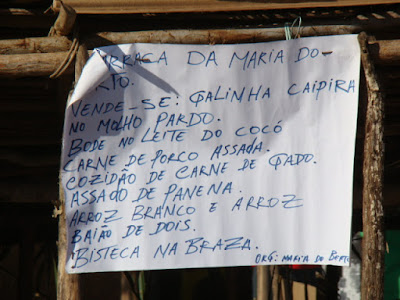 BARRACA DA MARIA DO-
BERTO.
VENDE-SE: GALINHA CAIPIRA
NO MOLHO PARDO.
BODE NO LEITE DO COCÓ
CARNE DE PORCO ASSADA.
COZIDÃO DE CARNE DE GADO.
ASSADO DE PANENA.
ARROZ BRANCO E ARROZ
BAIÃO DE DOIS.
BISTECA NA BRAZA.
ORG: MARIA DO BERTO